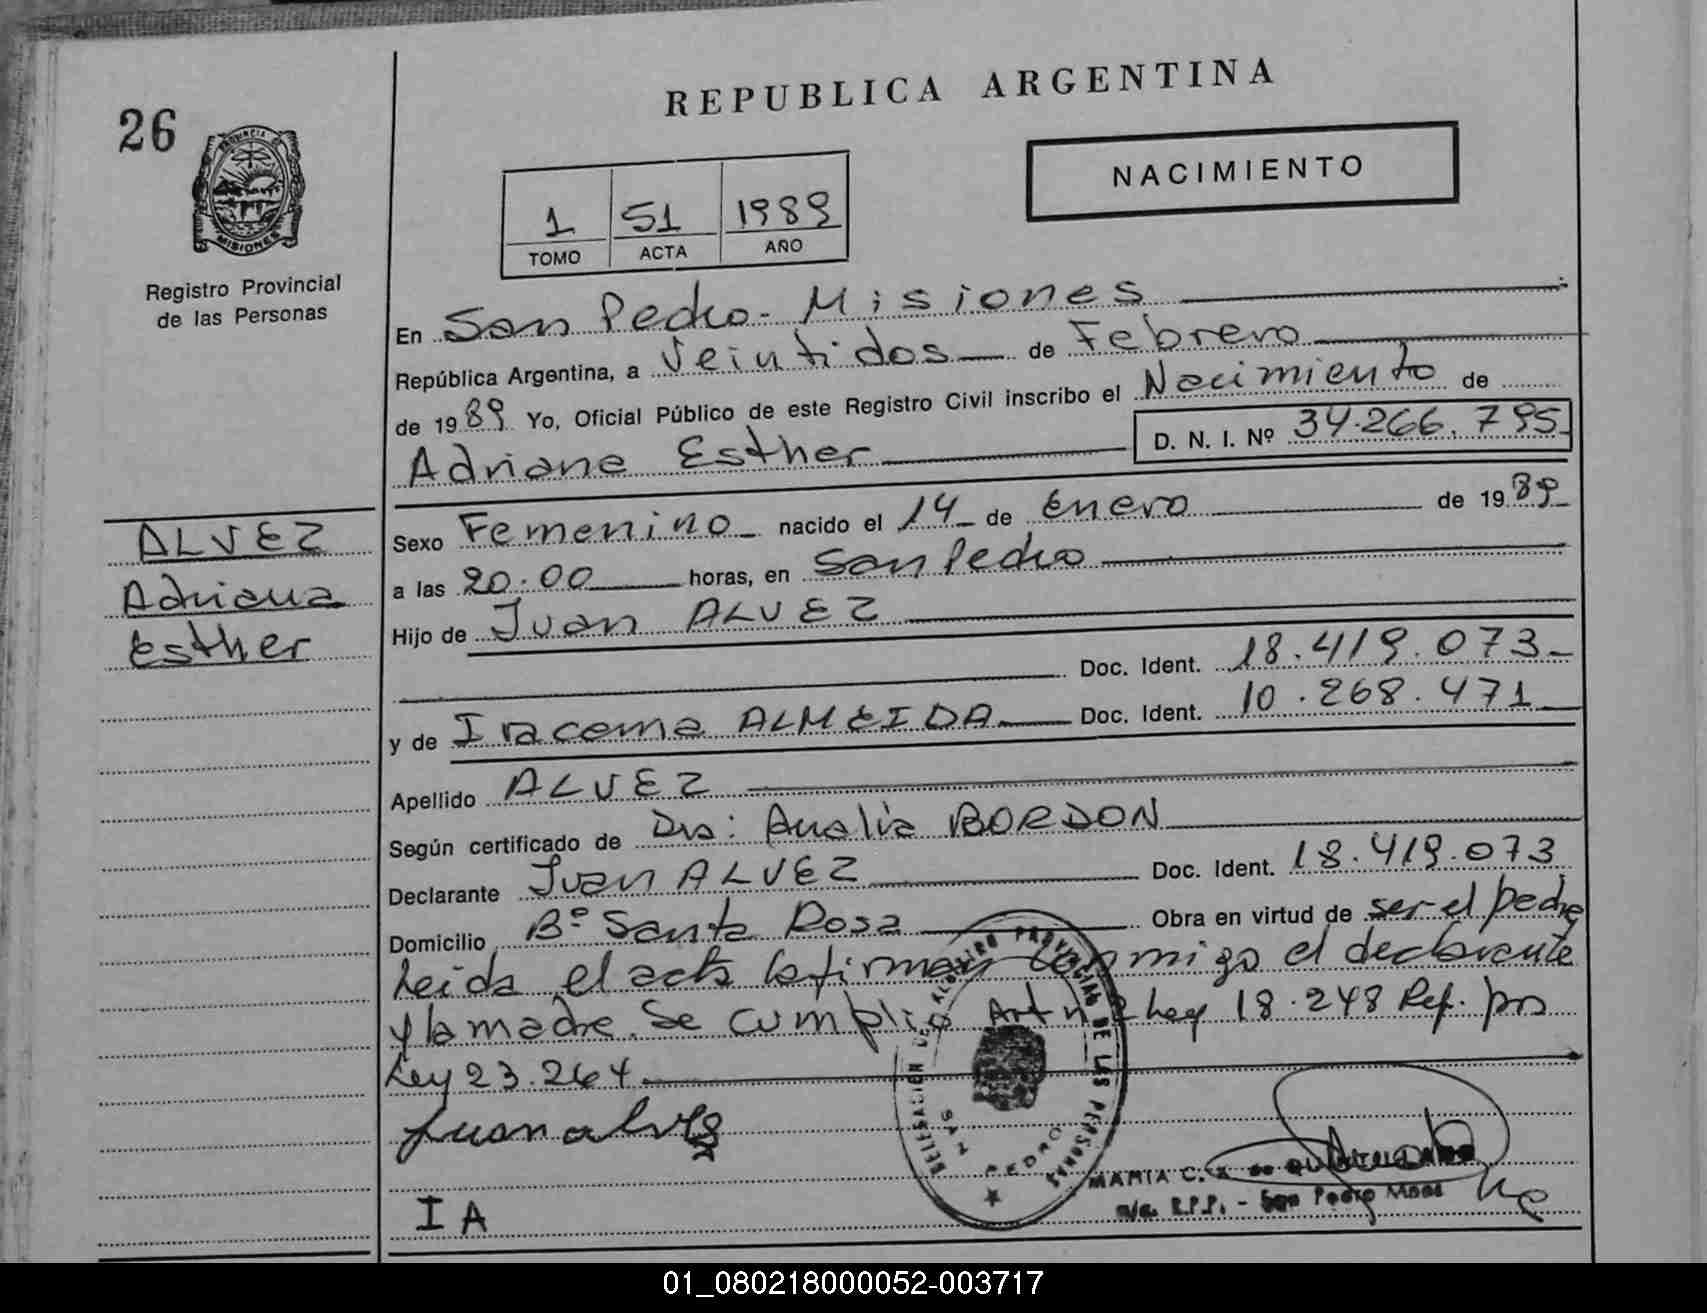 REPUBLICA ARGENTINA
26
NACIMIENTO
PROVINCIA DE
MISIONES
1 51 1989
TOMO ACTA AÑO
Registro Provincial
de las Personas
En San Pedro - Misiones
República Argentina, a Veintidos de Febrero
de 1989 Yo, Oficial Público de este Registro Civil inscribo el Nacimiento de
D. N. I. Nº 34.266.795
Adriana Esther
ALVEZ
Adriana
Esther
Sexo Femenino nacido el 14 de Enero de 1989
a las 20:00 horas, en San Pedro
Hijo de Juan ALVEZ
Doc. Ident. 18.419.073
y de Iracema ALMEIDA Doc. Ident. 10.268.471
Apellido ALVEZ
Según certificado de Dra: Analia BORDON
Declarante Juan ALVEZ Doc. Ident. 18.419.073
Domicilio Bº Santa Rosa Obra en virtud de ser el padre
Leida el acta la firman conmigo el declarante
y la madre. Se cumplio Art nº 2 Ley 18.248 Ref. por
Ley 23.264
Juan alvez
I A
DELEGACIÓN DEL REGISTRO PROVINCIAL DE LAS PERSONAS
SAN PEDRO
MARIA C.
a/c. R.P.P. - San Pedro Mnes
01_080218000052-003717